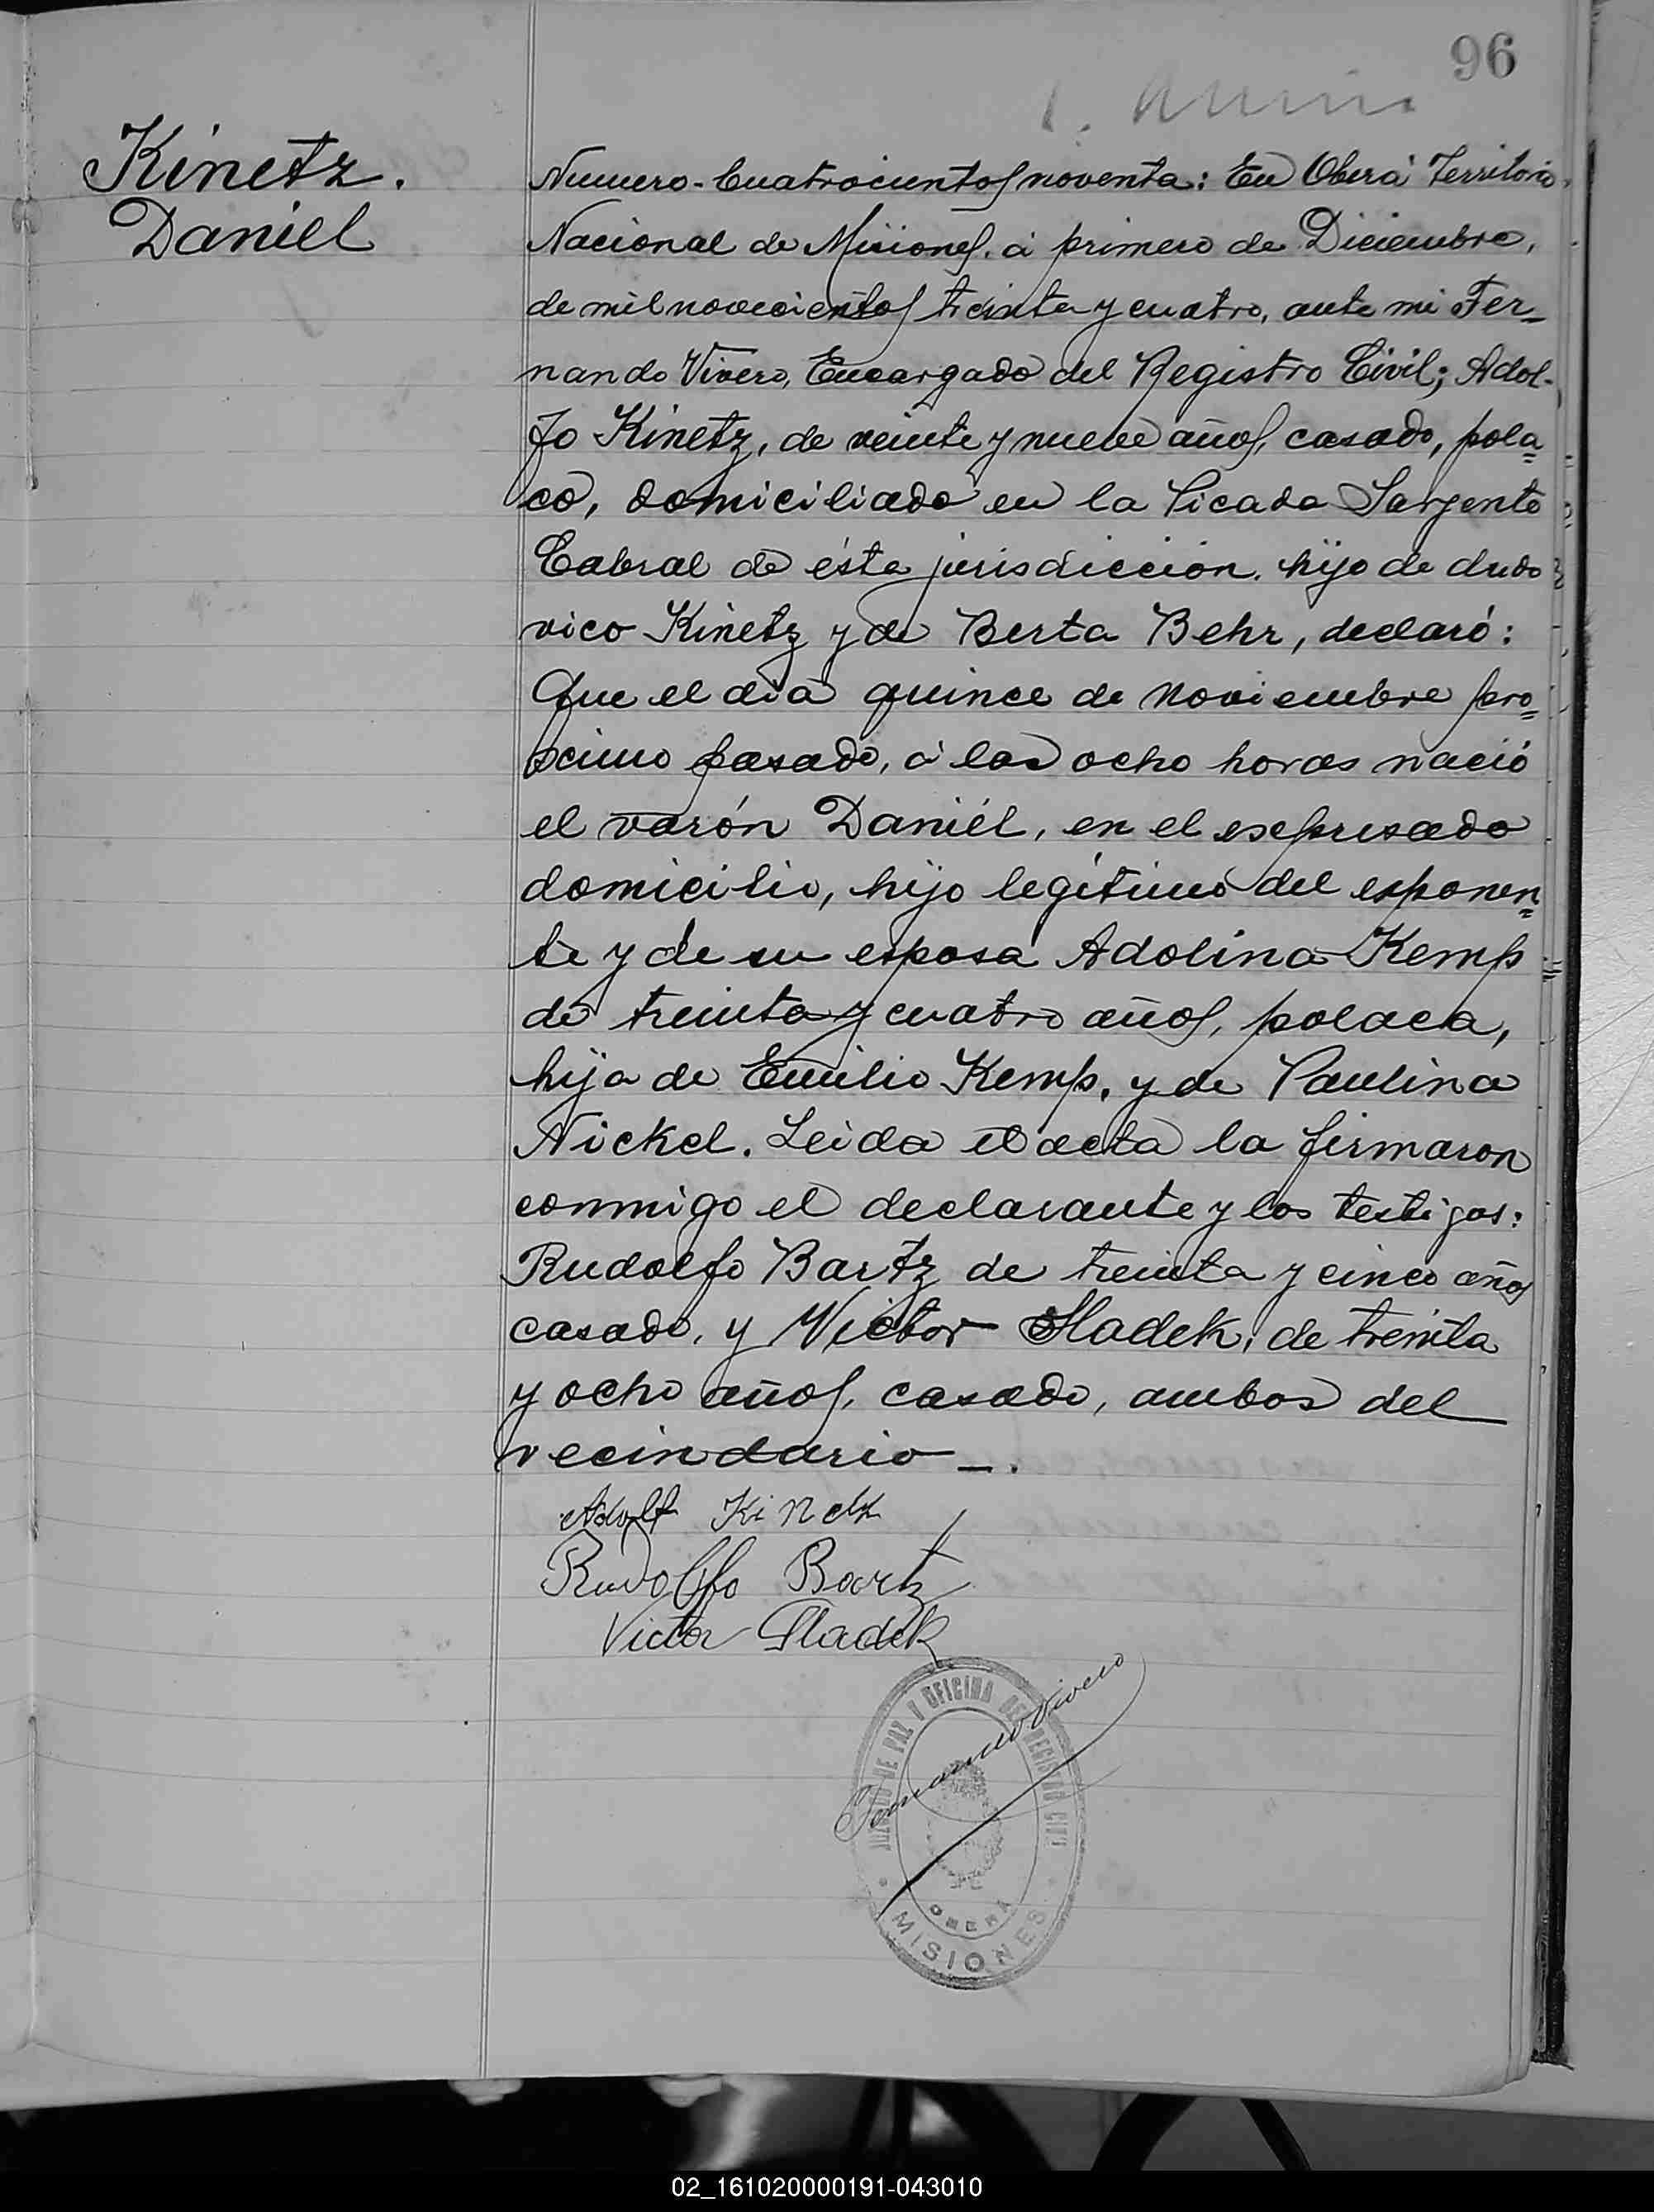 96
Kinetz.
Daniel
Numero-Cuatrocientos noventa: En Oberá Territorio
Nacional de Misiones. á primero de Diciembre,
de mil novecientos treinta y cuatro, ante mi Fer=
nando Vivero, Encargado del Registro Civil; Adol-
fo Kinetz, de veinte y nueve años, casado, pola=
co, domiciliado en la Picada Sargento
Cabral de ésta jurisdicción. hijo de Ludo
vico Kinetz y de Berta Behr, declaró:
Que el dia quince de Noviembre pro=
scimo pasado, á las ocho horas nació
el varón Daniél, en el escpresado
domicilio, hijo legítimo del esponen=
te y de su esposa Adolina Kemp
de treinta y cuatro años, polaca,
hija de Emilio Kemp, y de Paulina
Nickel. Leida el acta la firmaron
conmigo el declarante y los testigos:
Rudolfo Bartz de treinta y cinco años
casado, y Victor Sladek, de treinta
y ocho años, casado, ambos del
vecindario-.
Adolf Kinetz
Rudolffo Bartz
Victor Sladek
Fernando Vivero
JUZGADO DE PAZ Y OFICINA DEL REGISTRO CIVIL
OBERÁ
MISIONES
02_161020000191-043010